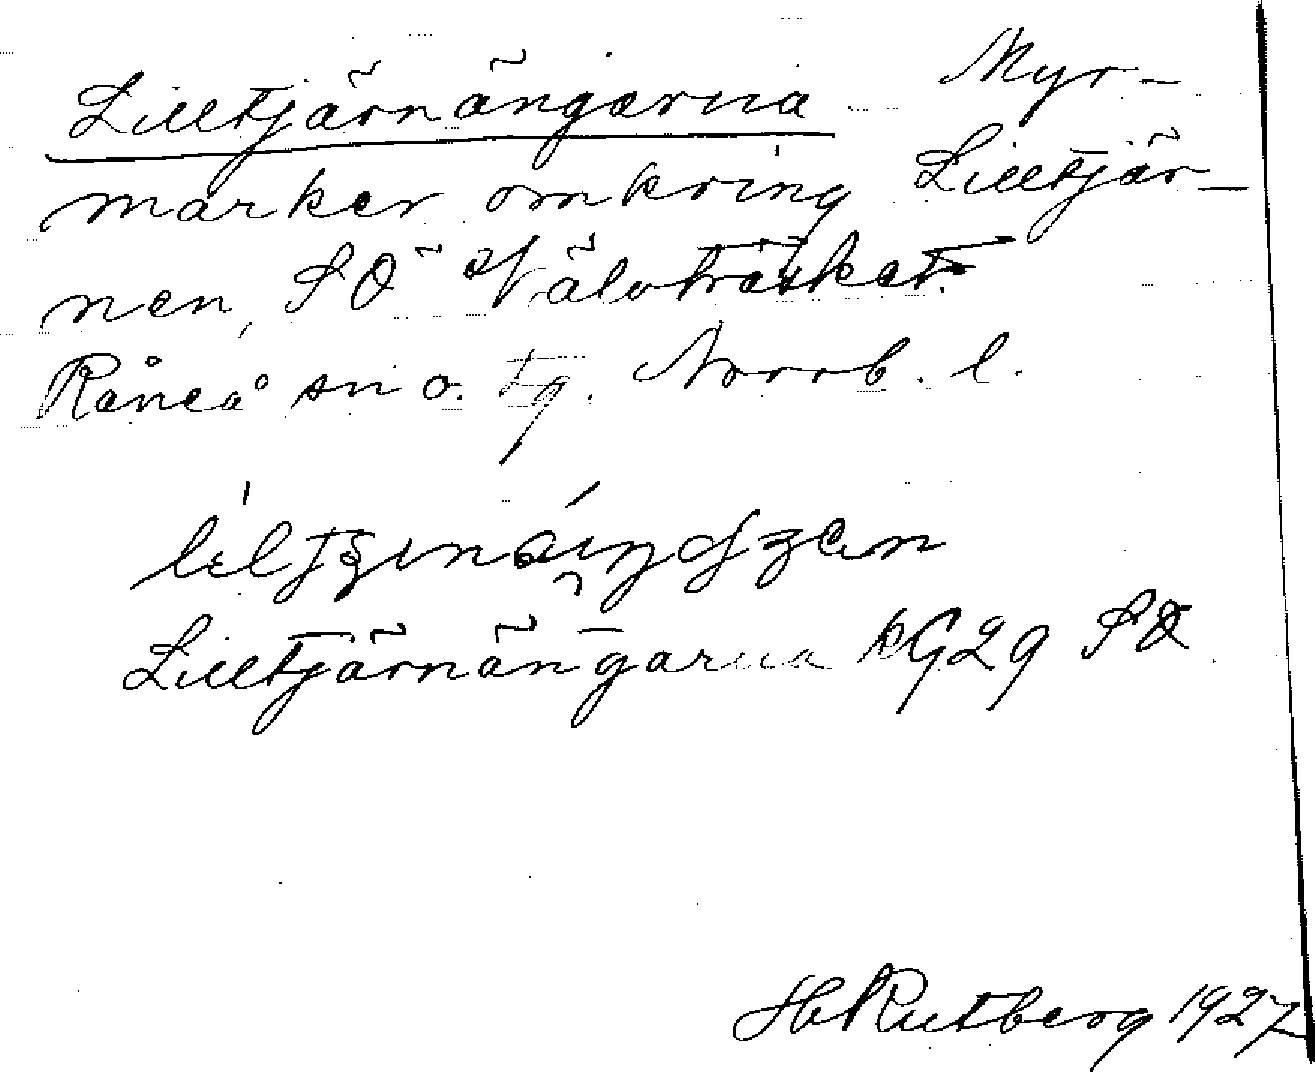 Lilltjärnängarna Myr-
marker omkring Lilltjär-
nen, SÖ Välvträsket.
Råneå sn o. tg. Norrb. l.
Lilltjärnängarna kG29 SÖ
H Rutberg 1927